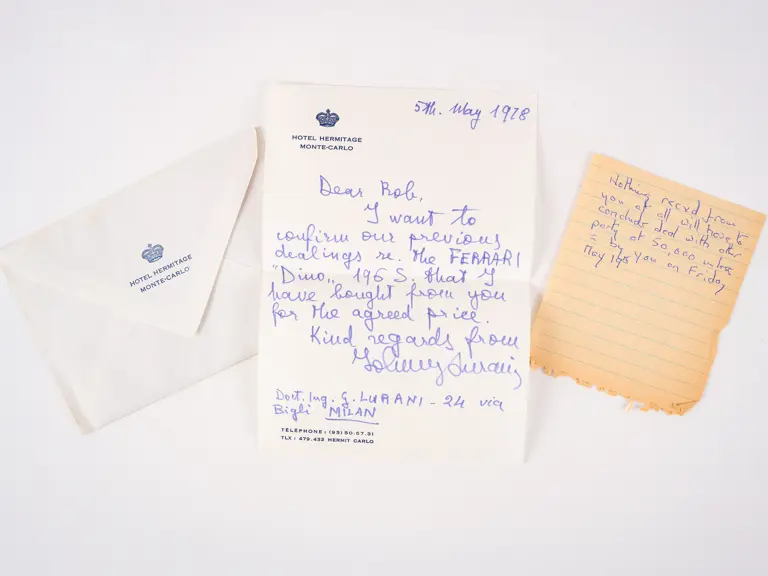 HOTEL HERMITAGE
MONTE-CARLO
HOTEL HERMITAGE
MONTE-CARLO
5th. May 1978
Dear Rob,
I want to
confirm our previous
dealings re. the FERRARI
"Dino„ 196 S. that I
have bought from you
for the agreed price.
Kind regards from
Johnny Lurani
Dott. Ing. G. LURANI - 24 via
Bigli MILAN
TÉLÉPHONE : (93) 50.67.31
TLX : 479.432 HERMIT CARLO
Nothing recvd from
you at all will have to
conclude deal with other
party at 50,000 unless
by you on Friday
May